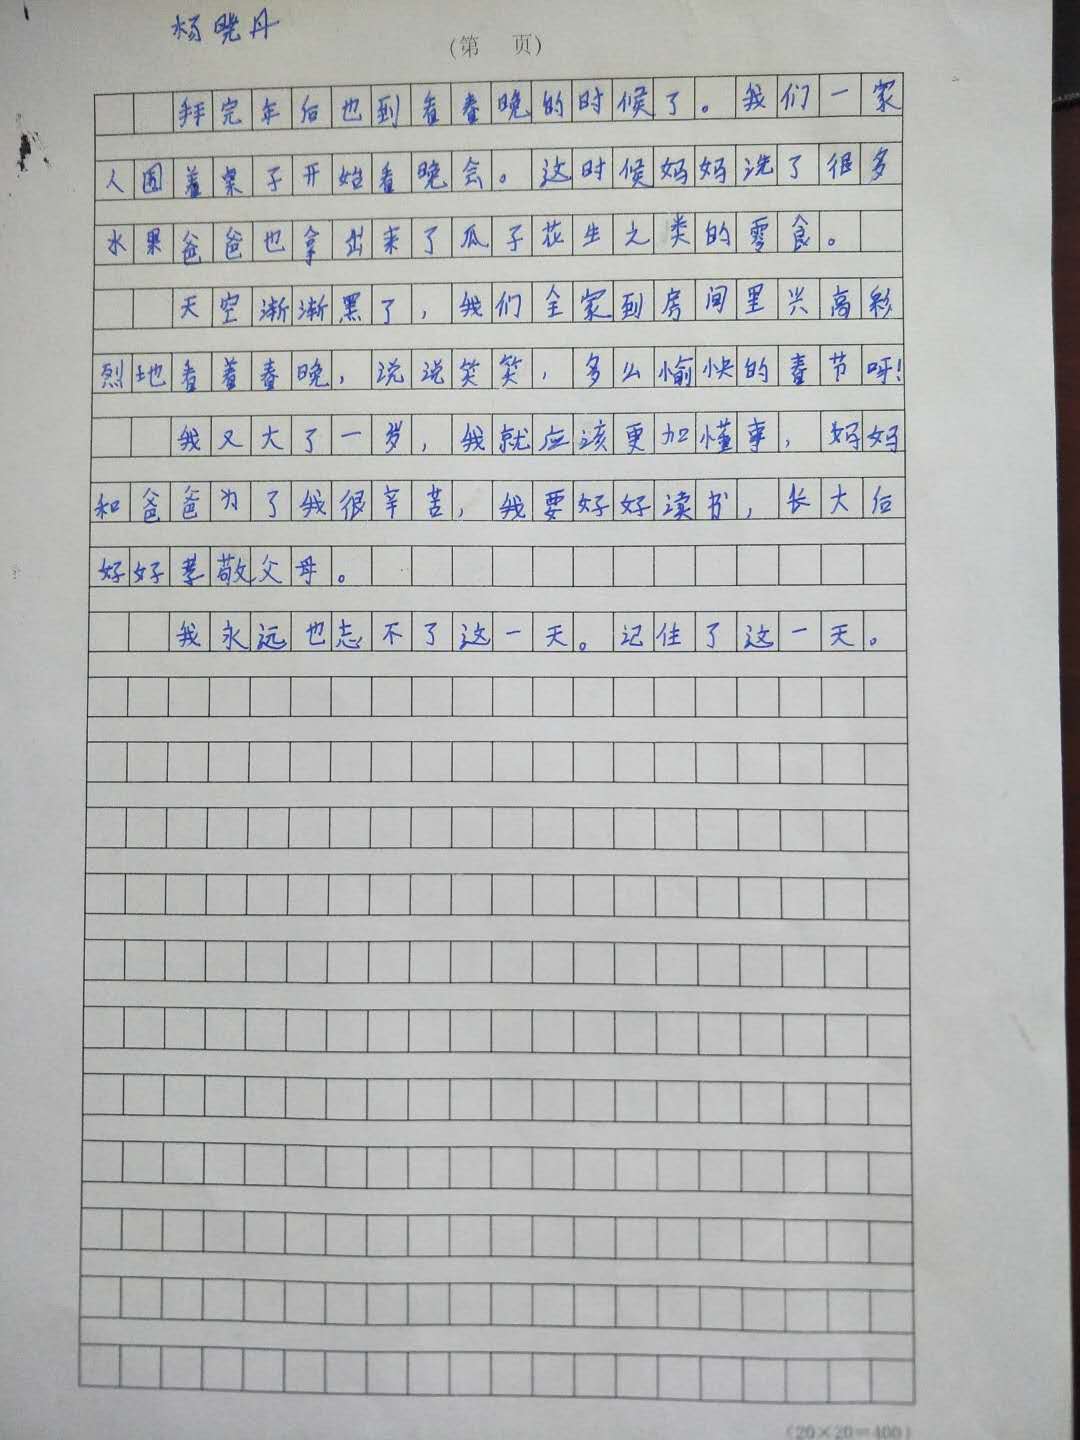 杨晓丹
(第 页)
拜完年后也到看春晚的时候了。我们一家
人围着桌子开始看晚会。这时候妈妈洗了很多
水果爸爸也拿出来了瓜子花生之类的零食。
天空渐渐黑了,我们全家到房间里兴高彩
烈地看着春晚,说说笑笑,多么愉快的春节呀!
我又大了一岁,我就应该更加懂事,妈妈
和爸爸为了我很辛苦,我要好好读书,长大后
好好孝敬父母。
我永远也忘不了这一天。记住了这一天。
(20×20=400)